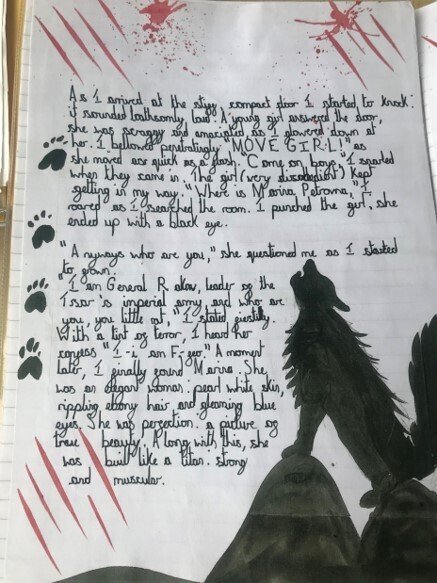 As I arrived at the stiff, compact door I started to knock.
it sounded loathsomly loud. A young girl answered the door,
she was scraggy and emaciated as I glowered down at
her. I bellowed penetratingly "MOVE GIRL!" as
she moved as quick as a flash. "Come on boys," I snarled
when they came in. The girl (very disobedient) kept
getting in my way. "Where is Marina Petrovna," I
roared as I searched the room. I punched the girl, she
ended up with a black eye.
"Anyways who are you," she questioned me as I started
to frown.
"I am General Rakov, leader of the
Tsar's imperial army, and who are
you, you little
With a tint of terror, I heard her
confess "I-i am F-feo." A moment
later, I finally found Marina. She
was an elegant woman. pearl white skin,
rippling ebony hair and gleaming blue
eyes. She was perfection. a picture of
true beauty, A long with this, she
was built like a titan. strong
and muscular.